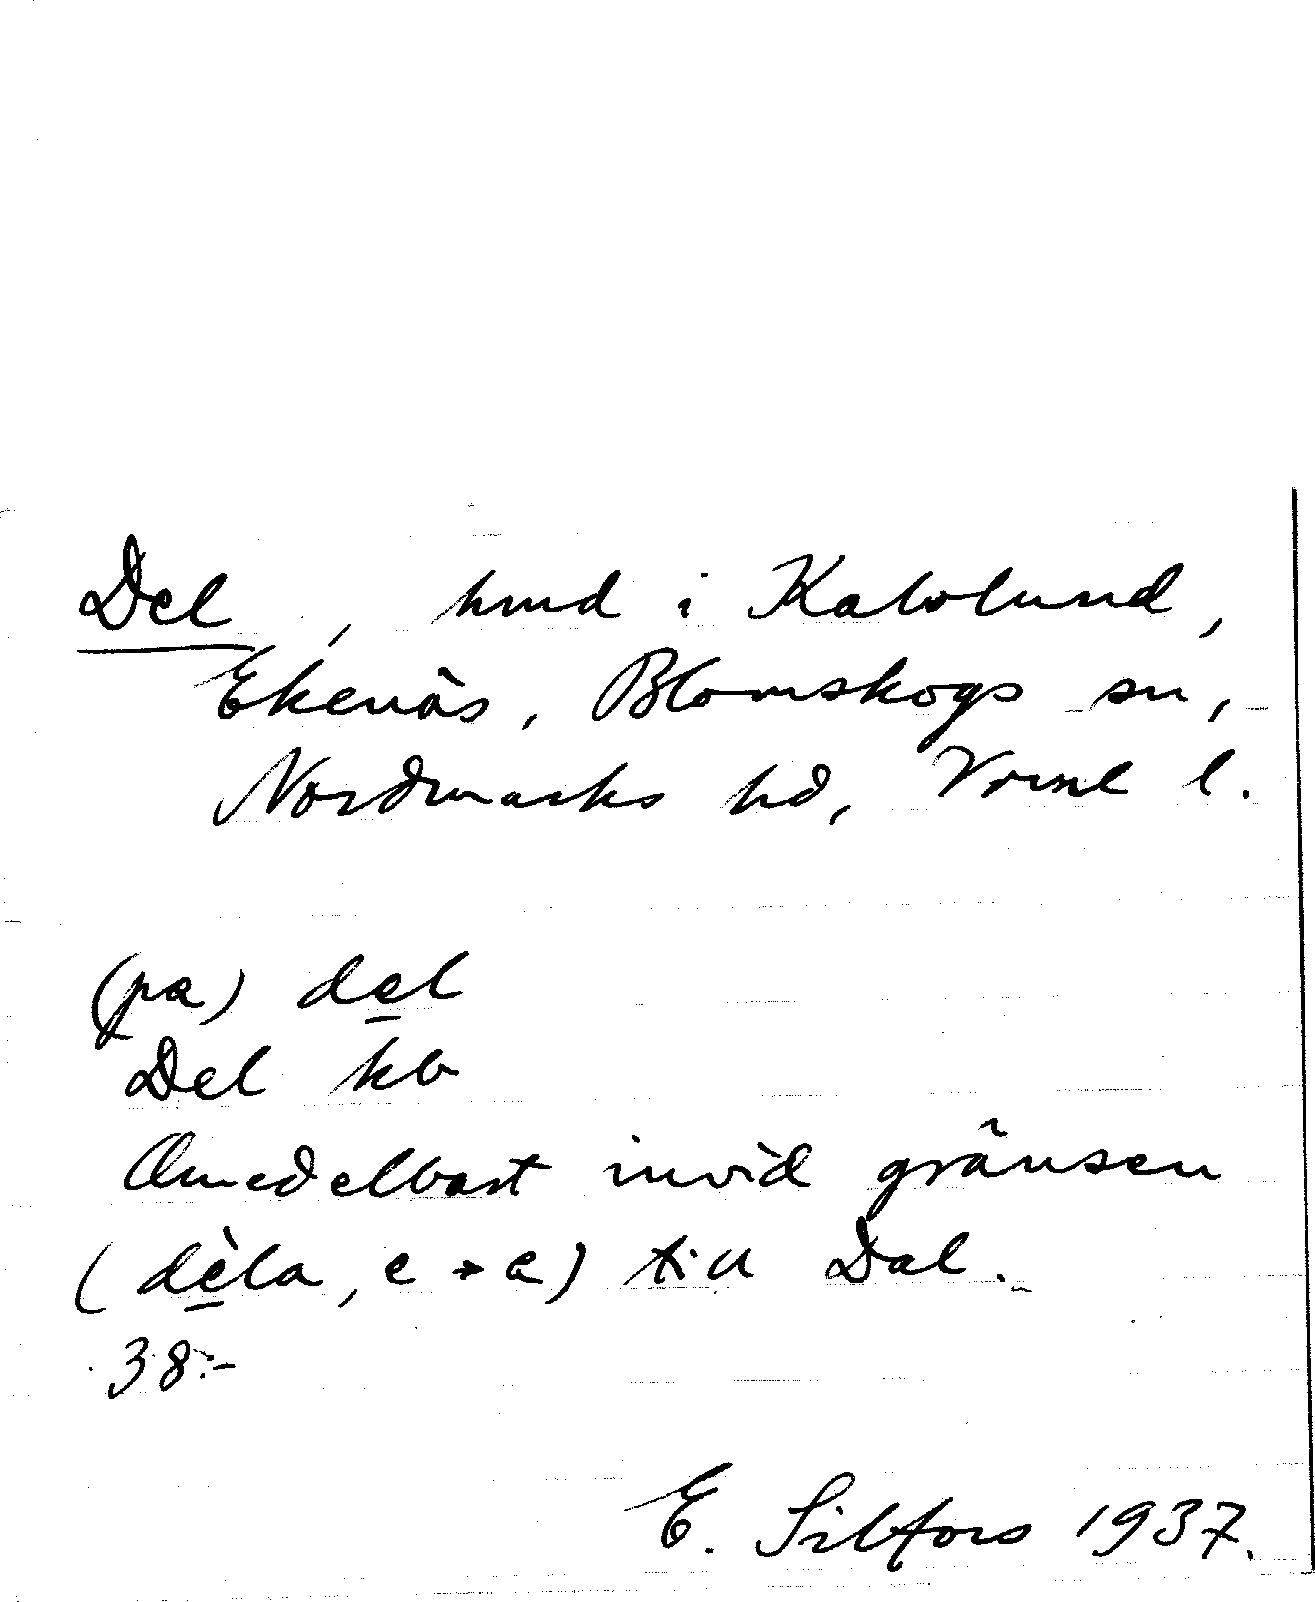 Del, hmd i Kalvlund,
Ekenäs, Blomskogs sn,
Nordmarks hd, Vrml l.
(pa) del
Del kb
Omedelbart invid gränsen
(dèla, e → a) till Dal.
38:-
E. Silfors 1937.